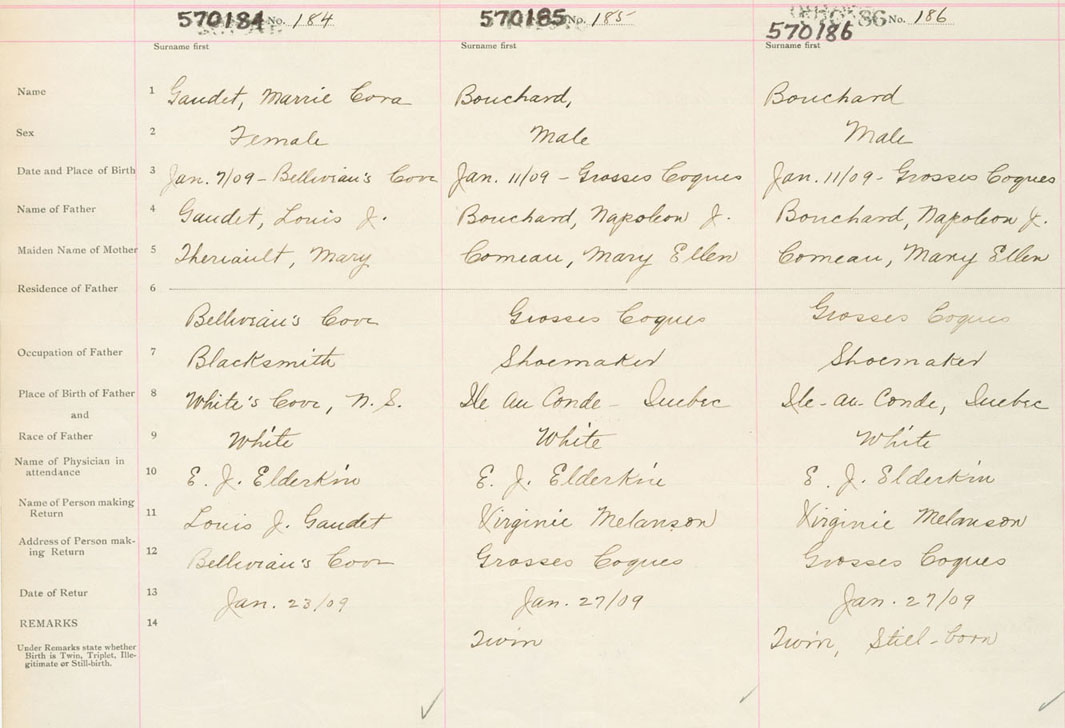 570184 No. 184 570185 No. 185 No. 186
570186
Surname first Surname first Surname first
Name 1 Gaudet, Marrie Cora Bouchard, Bouchard
Sex 2 Female Male Male
Date and Place of Birth 3 Jan. 7/09 - Bellivian's Cove Jan. 11/09 - Grosses Coques Jan. 11/09 - Grosses Coques
Name of Father 4 Gaudet, Louis J. Bouchard, Napoleon J. Bouchard, Napoleon J.
Maiden Name of Mother 5 Theriault, Mary Comeau, Mary Ellen Comeau, Mary Ellen
Residence of Father 6
Bellivian's Cove Grosses Coques Grosses Coques
Occupation of Father 7 Blacksmith Shoemaker Shoemaker
Place of Birth of Father 8 White's Cove, N.S. Ile au Conde - Quebec Ile-au-Conde, Quebec
and
Race of Father 9 White White White
Name of Physician in
attendance 10 E. J. Elderkin E. J. Elderkin E. J. Elderkin
Name of Person making
Return 11 Louis J. Gaudet Virginie Melanson Virginie Melanson
Address of Person mak-
ing Return 12 Bellivian's Cove Grosses Coques Grosses Coques
Date of Retur 13 Jan. 23/09 Jan. 27/09 Jan. 27/09
REMARKS 14 Twin Twin, Still-born
Under Remarks state whether
Birth is Twin, Triplet, Ille-
gitimate or Still-birth.